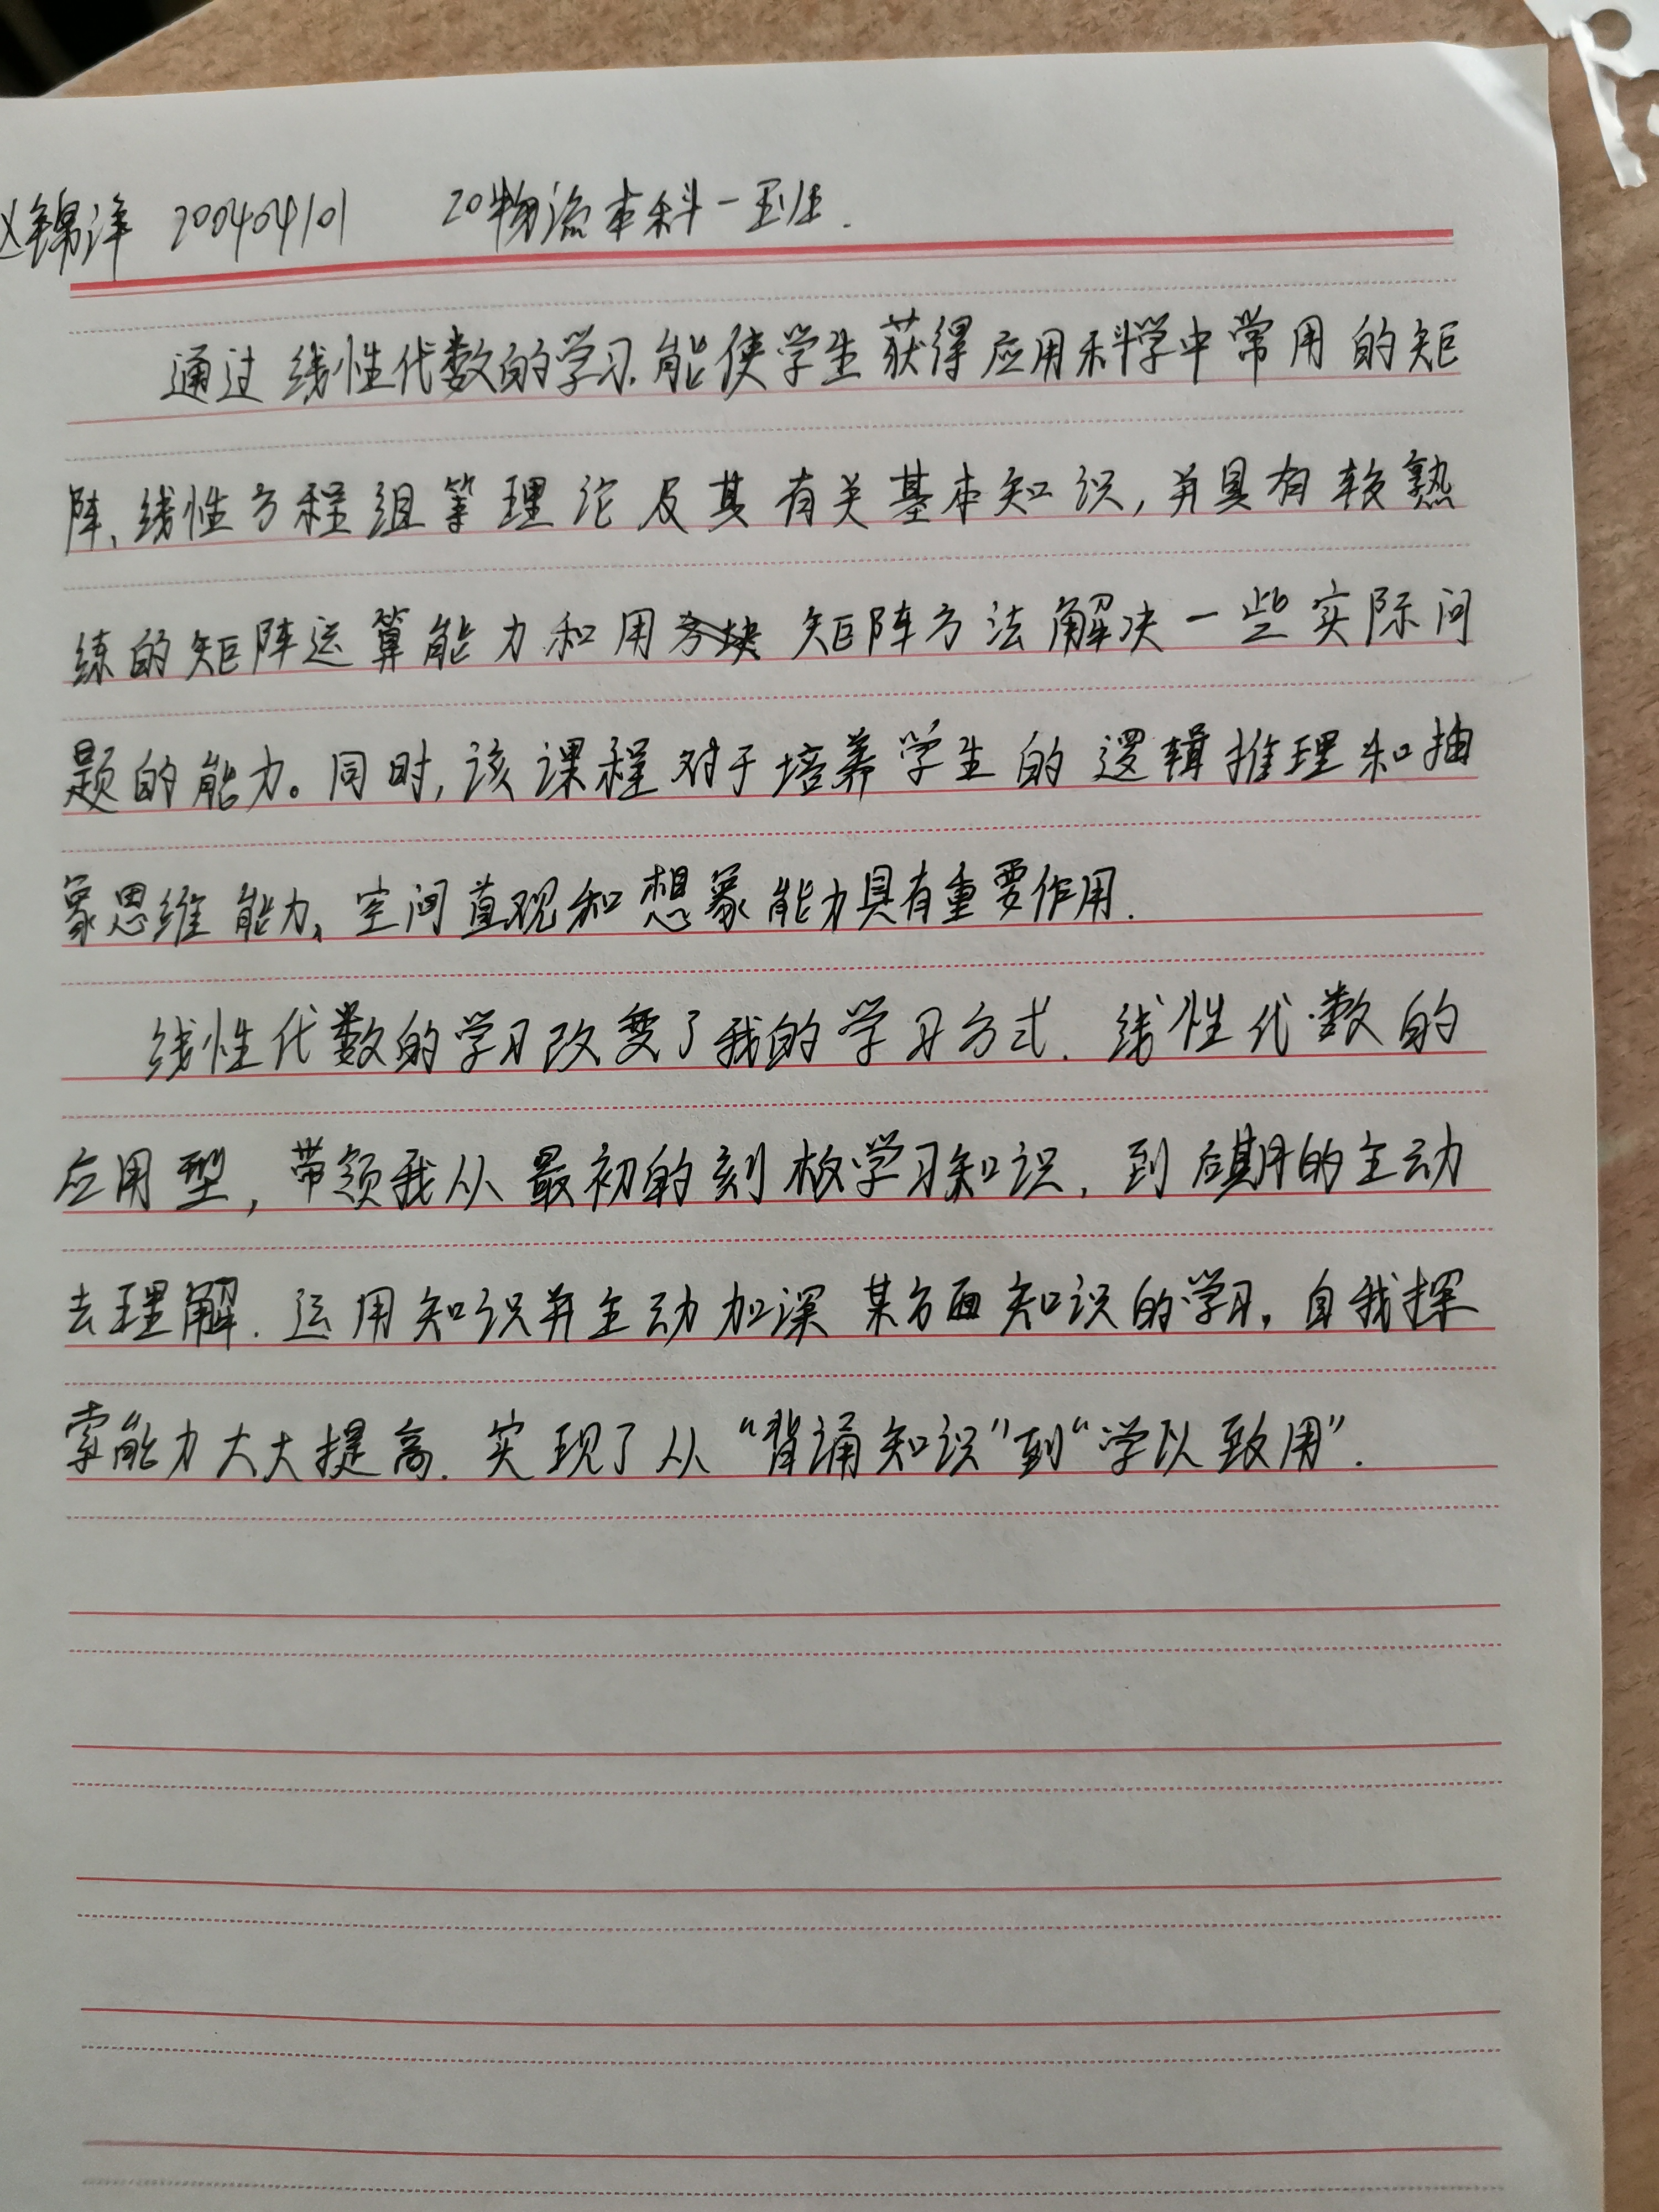 赵锦洋 200404101 20物流本科一班.
通过线性代数的学习,能使学生获得应用科学中常用的矩
阵、线性方程组等理论及其有关基本知识,并具有较熟
练的矩阵运算能力和用矩阵方法解决一些实际问
题的能力。同时,该课程对于培养学生的逻辑推理和抽
象思维能力、空间直观和想象能力具有重要作用.
线性代数的学习改变了我的学习方式.线性代数的
应用型,带领我从最初的刻板学习知识,到后期的主动
去理解.运用知识并主动加深某方面知识的学习,自我探
索能力大大提高.实现了从“背诵知识”到“学以致用”.